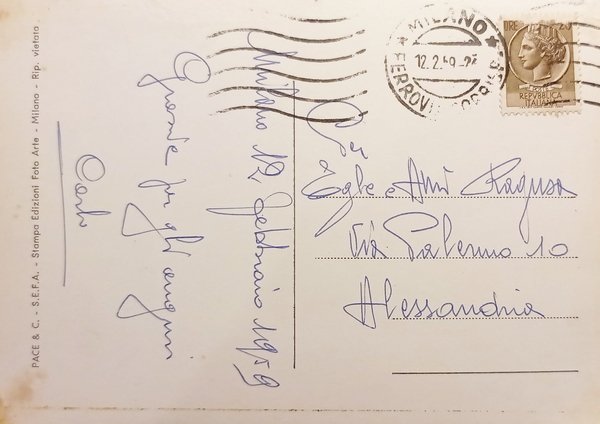 PACE & C. - S.E.F.A. - Stampa Edizioni Foto Arte - Milano - Rip. vietata
Milano 12 febbraio 1959
Grazie per gli auguri
Carlo
MILANO
FERROVIA
12.2.59
LIRE 20
REPVBBLICA
ITALIANA
Egle e Ragusa
Via Palermo 10
Alessandria